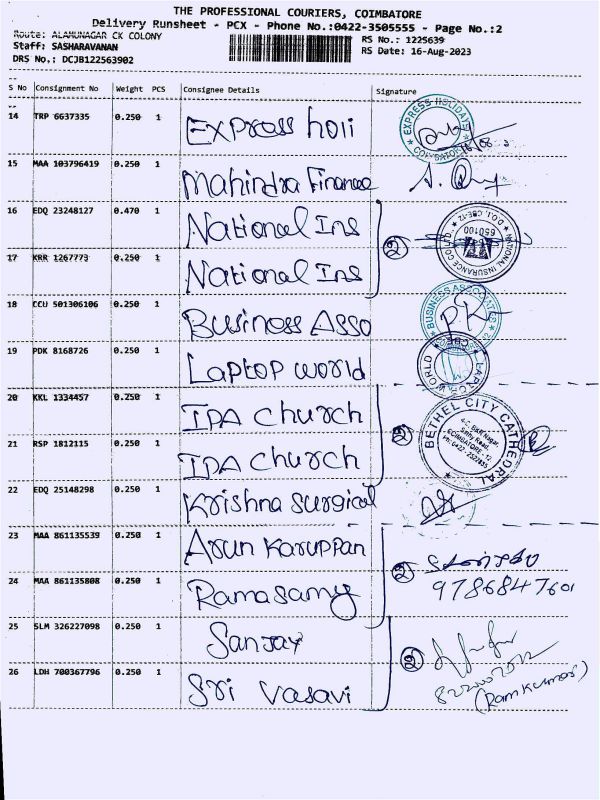 THE PROFESSIONAL COURIERS, COIMBATORE
Delivery Runsheet - PCX - Phone No.:0422-3505555 - Page No.:2
Route: ALAMUNAGAR CK COLONY
Staff: SASHARAVANAN
DRS No.: DCJB122563902
RS No.: 1225639
RS Date: 16-Aug-2023
S No Consignment No Weight PCS Consignee Details Signature
14 TRP 6637335 0.250 1 Express holi
EXPRESS HOLIDAYS COIMBATORE
15 MAA 103796419 0.250 1 Mahindra Finance
16 EDQ 23248127 0.470 1 National Ins
17 KRR 1267773 0.250 1 National Ins
2
NATIONAL INSURANCE CO LTD. D.O.I. CBE-12 650100
18 CCU 501306106 0.250 1 Business Asso
BUSINESS ASSOCIATES
19 PDK 8168726 0.250 1 Laptop world
LAPTOP WORLD CBE
20 KKL 1334457 0.250 1 IPA church
21 RSP 1812115 0.250 1 IPA church
2
BETHEL CITY CATHEDRAL
22 EDQ 25148298 0.250 1 Krishna surgical
23 MAA 861135539 0.250 1 Arun Karuppan
24 MAA 861135808 0.250 1 Ramasamy
2
9786847601
25 SLM 326227098 0.250 1 Sanjay
26 LDH 700367796 0.250 1 Sri Vasavi
2
(Ramkumar)